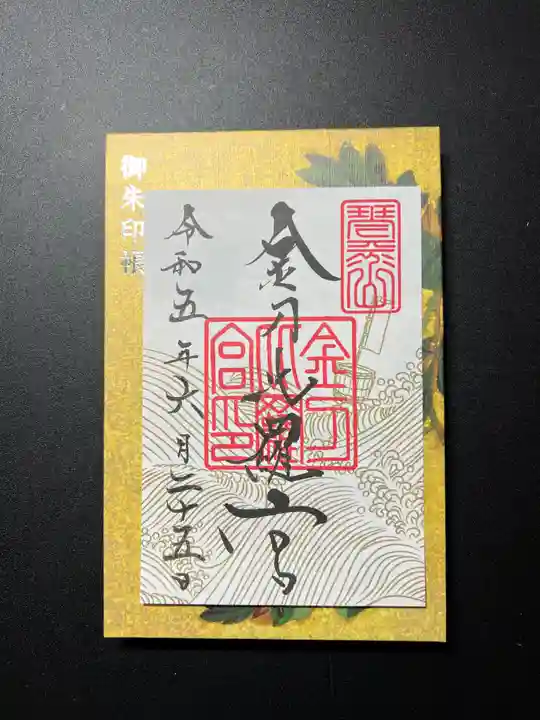 琴平山
金刀比羅宮
金刀比羅宮印
令和五年六月二十五日
御朱印帳